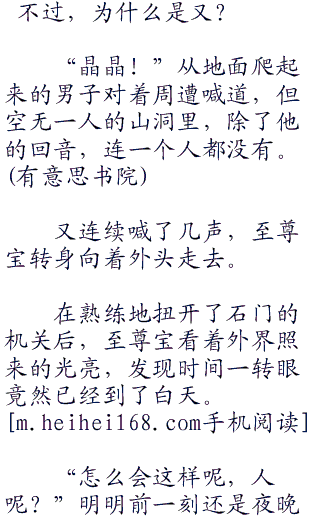 不过，为什么是又？
“晶晶！”从地面爬起
来的男子对着周遭喊道，但
空无一人的山洞里，除了他
的回音，连一个人都没有。
(有意思书院)
又连续喊了几声，至尊
宝转身向着外头走去。
在熟练地扭开了石门的
机关后，至尊宝看着外界照
来的光亮，发现时间一转眼
竟然已经到了白天。
[m.heihei168.com手机阅读]
“怎么会这样呢，人
呢？”明明前一刻还是夜晚